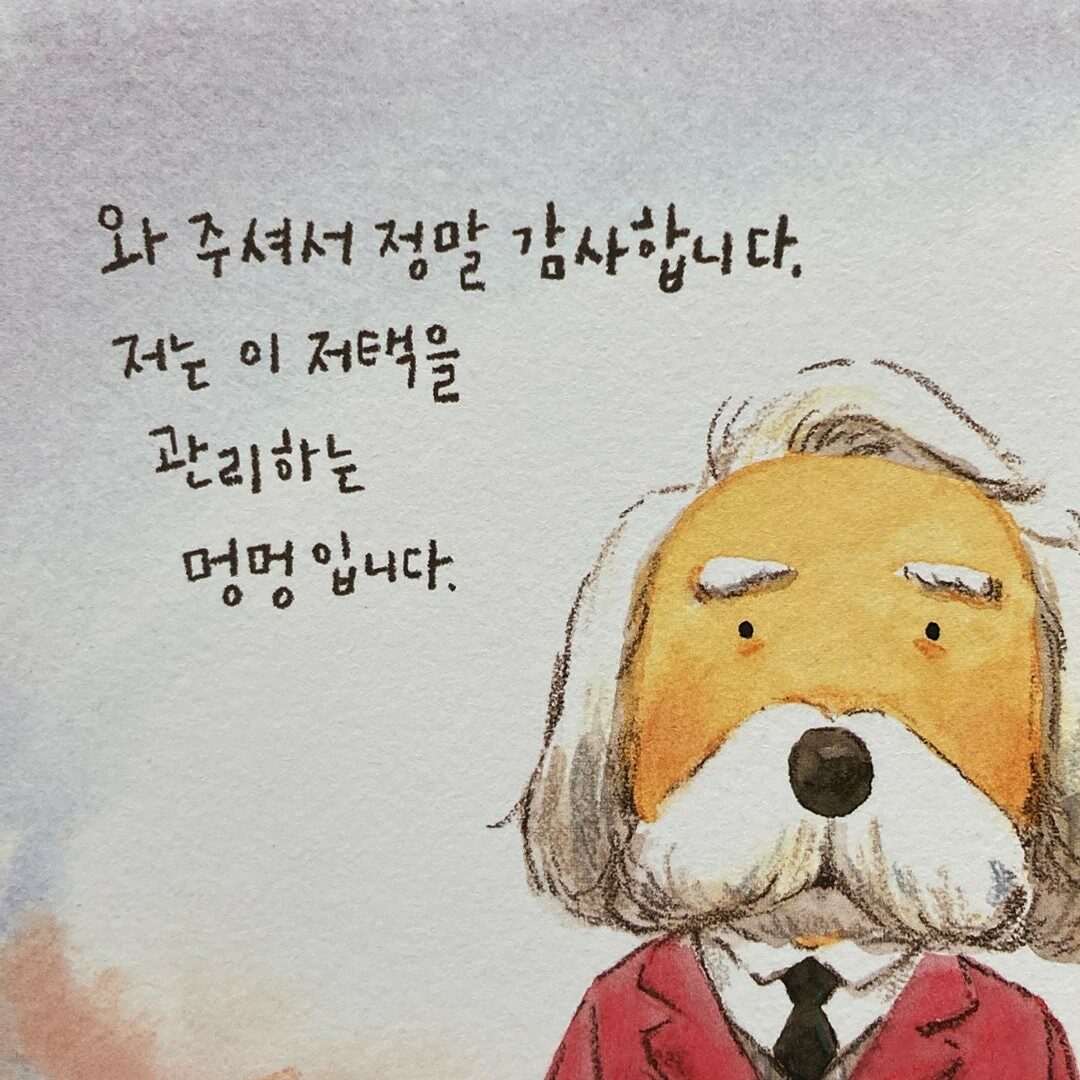 와 주셔서 정말 감사합니다.
저는 이 저택을
관리하는
멍멍입니다.